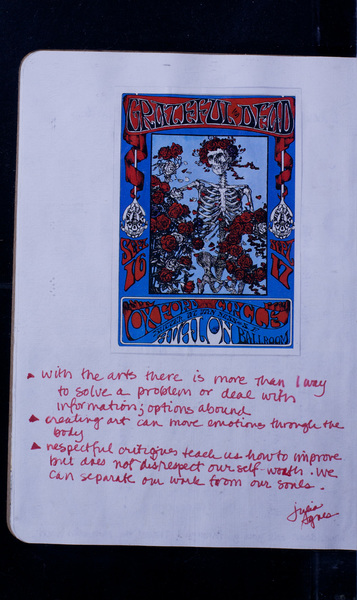 GRATEFUL DEAD
SEPT 16
SEPT 17
OXFORD CIRCLE
AVALON BALLROOM
with the arts there is more than 1 way
to solve a problem or deal with
information; options abound
creating art can move emotions through the
body
respectful critiques teach us how to improve
but does not disrespect our self worth. we
can separate our work from our souls.
Agnes